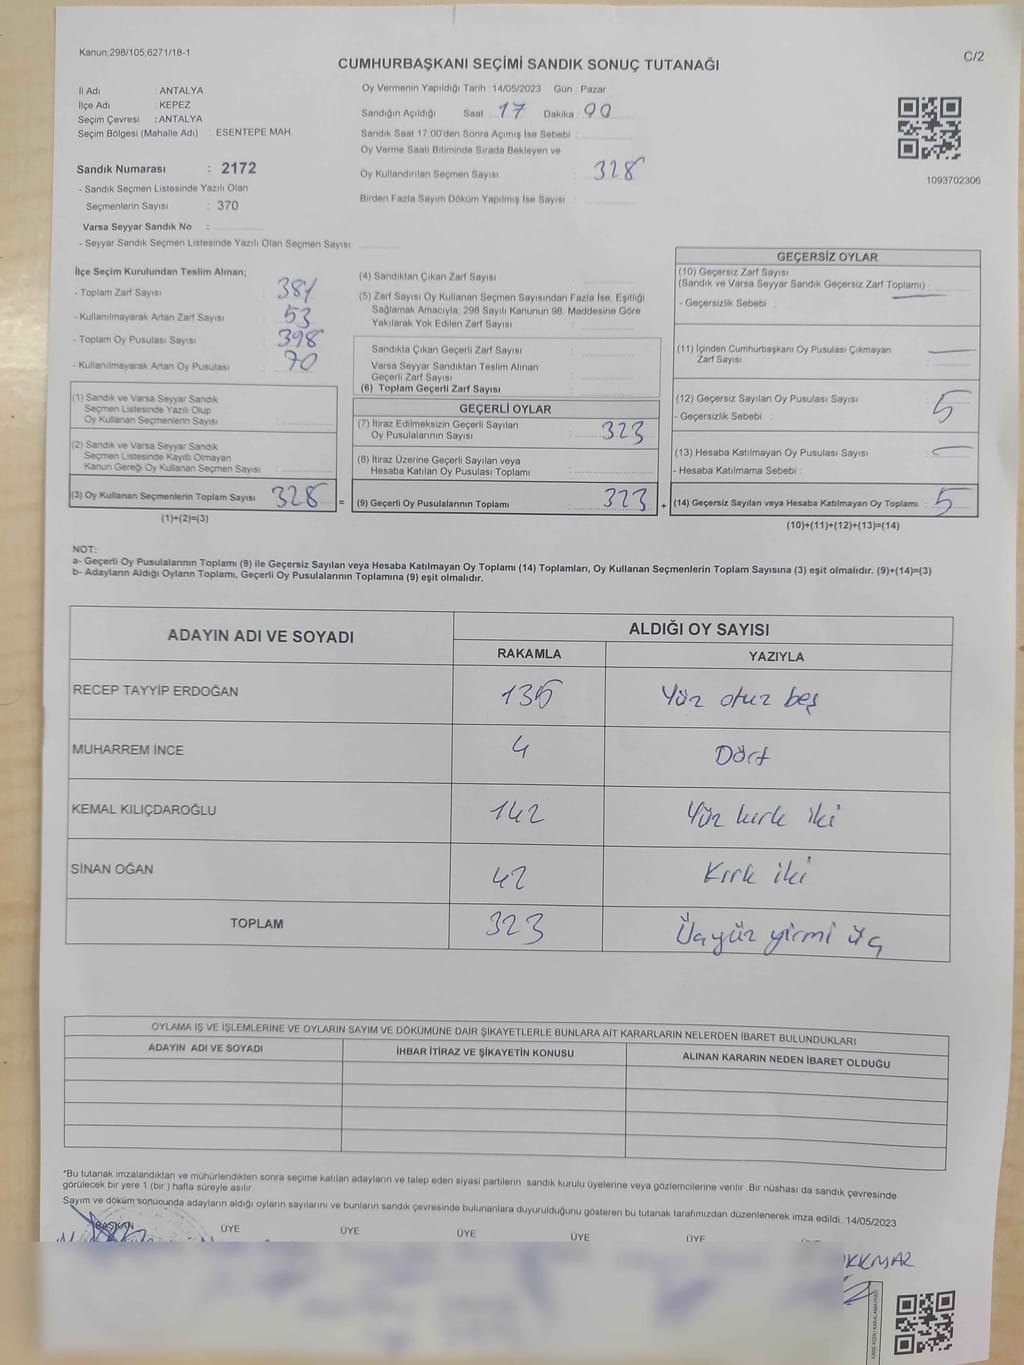 Kanun;298/105,6271/18-1
C/2
CUMHURBAŞKANI SEÇİMİ SANDIK SONUÇ TUTANAĞI
İl Adı : ANTALYA
İlçe Adı : KEPEZ
Seçim Çevresi : ANTALYA
Seçim Bölgesi (Mahalle Adı) : ESENTEPE MAH.
Oy Vermenin Yapıldığı Tarih : 14/05/2023 Gün : Pazar
Sandığın Açıldığı Saat : 17 Dakika : 00
Sandık Saat 17:00'den Sonra Açımış İse Sebebi :
Oy Verme Saati Bitiminde Sırada Bekleyen ve
Oy Kullandırılan Seçmen Sayısı : 328
Birden Fazla Sayım Döküm Yapılmış İse Sayısı :
1093702306
Sandık Numarası : 2172
- Sandık Seçmen Listesinde Yazılı Olan
Seçmenlerin Sayısı : 370
Varsa Seyyar Sandık No :
- Seyyar Sandık Seçmen Listesinde Yazılı Olan Seçmen Sayısı:
İlçe Seçim Kurulundan Teslim Alınan;
- Toplam Zarf Sayısı : 381
- Kullanılmayarak Artan Zarf Sayısı : 53
- Toplam Oy Pusulası Sayısı : 398
- Kullanılmayarak Artan Oy Pusulası : 70
(1) Sandık ve Varsa Seyyar Sandık
Seçmen Listesinde Yazılı Olup
Oy Kullanan Seçmenlerin Sayısı :
(2) Sandık ve Varsa Seyyar Sandık
Seçmen Listesinde Kayıtlı Olmayan
Kanun Gereği Oy Kullanan Seçmen Sayısı :
(3) Oy Kullanan Seçmenlerin Toplam Sayısı 328 =
(1)+(2)=(3)
(4) Sandıktan Çıkan Zarf Sayısı :
(5) Zarf Sayısı Oy Kullanan Seçmen Sayısından Fazla İse, Eşitliği
Sağlamak Amacıyla, 298 Sayılı Kanunun 98. Maddesine Göre
Yakılarak Yok Edilen Zarf Sayısı :
Sandıkta Çıkan Geçerli Zarf Sayısı :
Varsa Seyyar Sandıktan Teslim Alınan
Geçerli Zarf Sayısı :
(6) Toplam Geçerli Zarf Sayısı
GEÇERLİ OYLAR
(7) İtiraz Edilmeksizin Geçerli Sayılan
Oy Pusulalarının Sayısı : 323
(8) İtiraz Üzerine Geçerli Sayılan veya
Hesaba Katılan Oy Pusulaları Toplamı :
(9) Geçerli Oy Pusulalarının Toplamı : 323 +
GEÇERSİZ OYLAR
(10) Geçersiz Zarf Sayısı
(Sandık ve Varsa Seyyar Sandık Geçersiz Zarf Toplamı) :
- Geçersizlik Sebebi :
(11) İçinden Cumhurbaşkanı Oy Pusulası Çıkmayan
Zarf Sayısı :
(12) Geçersiz Sayılan Oy Pusulası Sayısı : 5
- Geçersizlik Sebebi :
(13) Hesaba Katılmayan Oy Pusulası Sayısı :
- Hesaba Katılmama Sebebi :
(14) Geçersiz Sayılan veya Hesaba Katılmayan Oy Toplamı : 5
(10)+(11)+(12)+(13)=(14)
NOT:
a- Geçerli Oy Pusulalarının Toplamı (9) ile Geçersiz Sayılan veya Hesaba Katılmayan Oy Toplamı (14) Toplamları, Oy Kullanan Seçmenlerin Toplam Sayısına (3) eşit olmalıdır. (9)+(14)=(3)
b- Adayların Aldığı Oyların Toplamı, Geçerli Oy Pusulalarının Toplamına (9) eşit olmalıdır.
ADAYIN ADI VE SOYADI
ALDIĞI OY SAYISI
RAKAMLA YAZIYLA
RECEP TAYYİP ERDOĞAN 135 Yüz otuz beş
MUHARREM İNCE 4 Dört
KEMAL KILIÇDAROĞLU 142 Yüz kırk iki
SİNAN OĞAN 42 Kırk iki
TOPLAM 323 Üçyüz yirmi üç
OYLAMA İŞ VE İŞLEMLERİNE VE OYLARIN SAYIM VE DÖKÜMÜNE DAİR ŞİKAYETLERLE BUNLARA AİT KARARLARIN NELERDEN İBARET BULUNDUKLARI
ADAYIN ADI VE SOYADI İHBAR İTİRAZ VE ŞİKAYETİN KONUSU ALINAN KARARIN NEDEN İBARET OLDUĞU
*Bu tutanak imzalandıktan ve mühürlendikten sonra seçime katılan adayların ve talep eden siyasi partilerin sandık kurulu üyelerine veya gözlemcilerine verilir. Bir nüshası da sandık çevresinde
görülecek bir yere 1 (bir ) hafta süreyle asılır.
Sayım ve döküm sonucunda adayların aldığı oyların sayılarını ve bunların sandık çevresinde bulunanlara duyurulduğunu gösteren bu tutanak tarafımızdan düzenlenerek imza edildi. 14/05/2023
BAŞKAN ÜYE ÜYE ÜYE ÜYE ÜYE